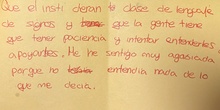 Que el insti dieran to clase de lenguaje
de signos y que la gente tiene
que tener paciencia y intentar entenderles
apoyarles. He he sentido muy agasicada
porque no entendia nada de lo
que me decia.